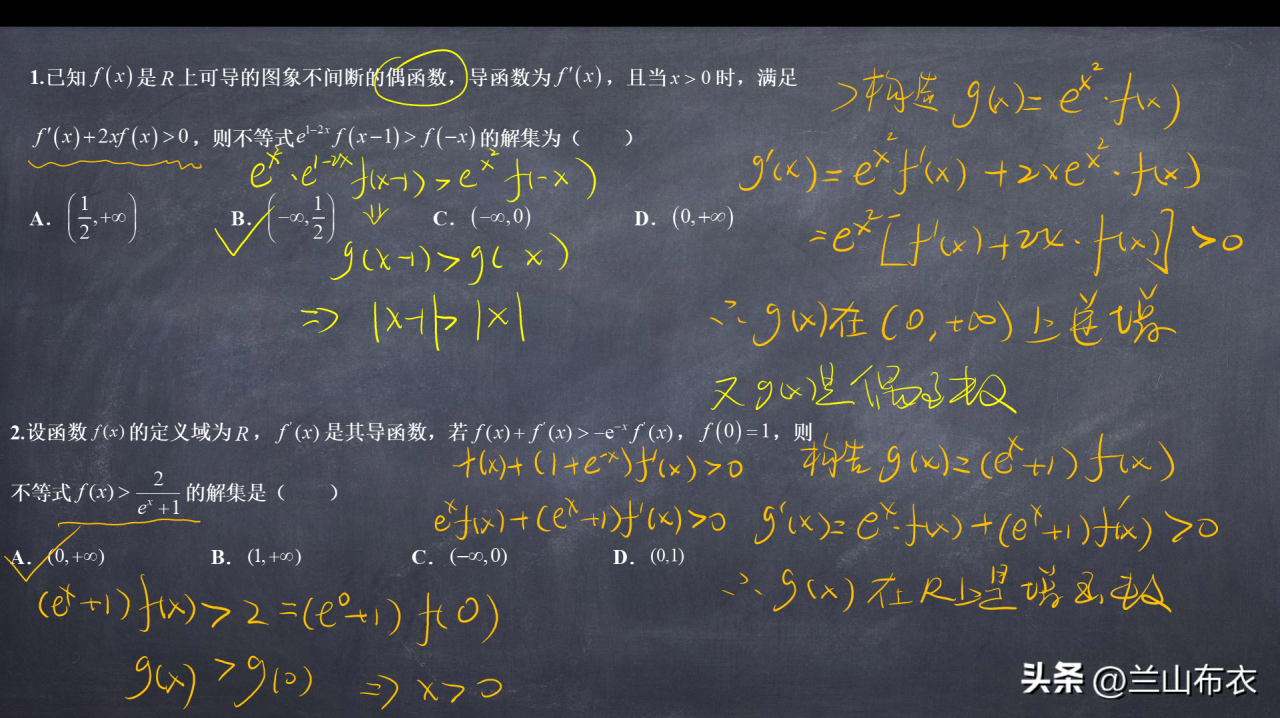 1.已知f(x)是R上可导的图象不间断的偶函数，导函数为f′(x)，且当x>0时，满足
f′(x)+2xf(x)>0，则不等式e^{1-2x}f(x-1)>f(-x)的解集为（ ）
A. (1/2,+∞) B. (-∞,1/2) C. (-∞,0) D. (0,+∞)
e^{x²}·e^{1-2x}f(x-1)>e^{x²}f(-x)
⇓
g(x-1)>g( x)
⇒ |x-1|>|x|
>构造 g(x)=e^{x²}·f(x)
g′(x)=e^{x²}f′(x)+2xe^{x²}·f(x)
=e^{x²}[f′(x)+2x·f(x)]>0
∴g(x)在(0,+∞)上单增
又g(x)是偶函数
2.设函数f(x)的定义域为R，f′(x)是其导函数，若f(x)+f′(x)>-e^{-x}f′(x)，f(0)=1，则
不等式f(x)>2/(e^x+1)的解集是（ ）
A. (0,+∞) B. (1,+∞) C. (-∞,0) D. (0,1)
f(x)+(1+e^{-x})f′(x)>0
e^x f(x)+(e^x+1)f′(x)>0
构造g(x)=(e^x+1)f(x)
g′(x)=e^x·f(x)+(e^x+1)f′(x)>0
∴g(x)在R上是增函数
(e^x+1)f(x)>2=(e^0+1)f(0)
g(x)>g(0) ⇒x>0
头条@兰山布衣